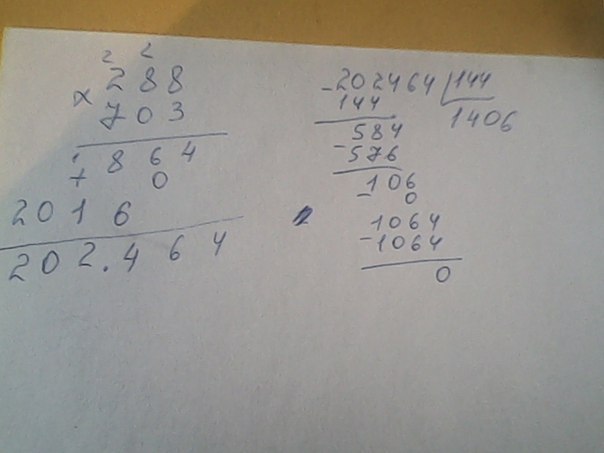 2 2
× 288
703
+ 864
0
2016
202.464
- 202464 144
144 1406
584
- 576
106
- 0
1064
- 1064
0